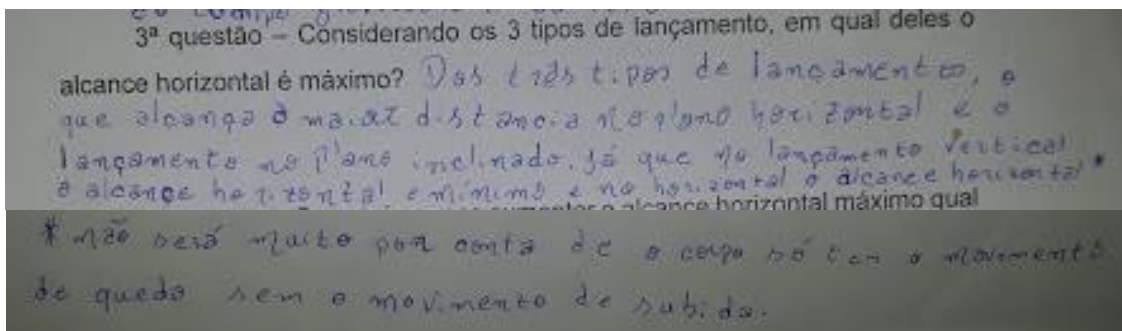 3ª questão – Considerando os 3 tipos de lançamento, em qual deles o
alcance horizontal é máximo? Dos três tipos de lançamento, o
que alcança a maior distancia no plano horizontal é o
lançamento no plano inclinado. já que no lançamento vertical
o alcance horizontal é minimo e no horizontal o alcance horizontal *
alcance horizontal máximo qual
* não será muito por conta de o corpo só ter o movimento
de queda sem o movimento de subida.